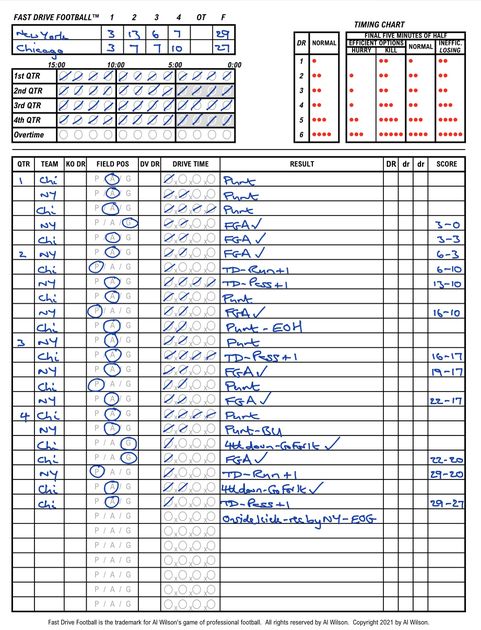 FAST DRIVE FOOTBALL™ 1 2 3 4 OT F
New York 3 13 6 7 29
Chicago 3 7 7 10 27
15:00 10:00 5:00 0:00
1st QTR
2nd QTR
3rd QTR
4th QTR
Overtime
TIMING CHART
FINAL FIVE MINUTES OF HALF
DR NORMAL EFFICIENT OPTIONS NORMAL INEFFIC.
HURRY KILL LOSING
1
2
3
4
5
6
QTR TEAM KO DR FIELD POS DV DR DRIVE TIME RESULT DR dr dr SCORE
1 Chi P / A / G Punt
NY P / A / G Punt
Chi P / A / G Punt
NY P / A / G FGA ✓ 3-0
Chi P / A / G FGA ✓ 3-3
2 NY P / A / G FGA ✓ 6-3
Chi P / A / G TD-Run+1 6-10
NY P / A / G TD-Pass+1 13-10
Chi P / A / G Punt
NY P / A / G FGA ✓ 16-10
Chi P / A / G Punt-EOH
3 NY P / A / G Punt
Chi P / A / G TD-Pass+1 16-17
NY P / A / G FGA ✓ 19-17
Chi P / A / G Punt
NY P / A / G FGA ✓ 22-17
4 Chi P / A / G Punt
NY P / A / G Punt-BU
Chi P / A / G 4thdown-GoForIt ✓
Chi P / A / G FGA ✓ 22-20
NY P / A / G TD-Run+1 29-20
Chi P / A / G 4thdown-GoForIt ✓
Chi P / A / G TD-Pass+1 29-27
P / A / G Onside kick-rec by NY-EOG
P / A / G
P / A / G
P / A / G
P / A / G
P / A / G
P / A / G
Fast Drive Football is the trademark for Al Wilson's game of professional football. All rights reserved by Al Wilson. Copyright 2021 by Al Wilson.